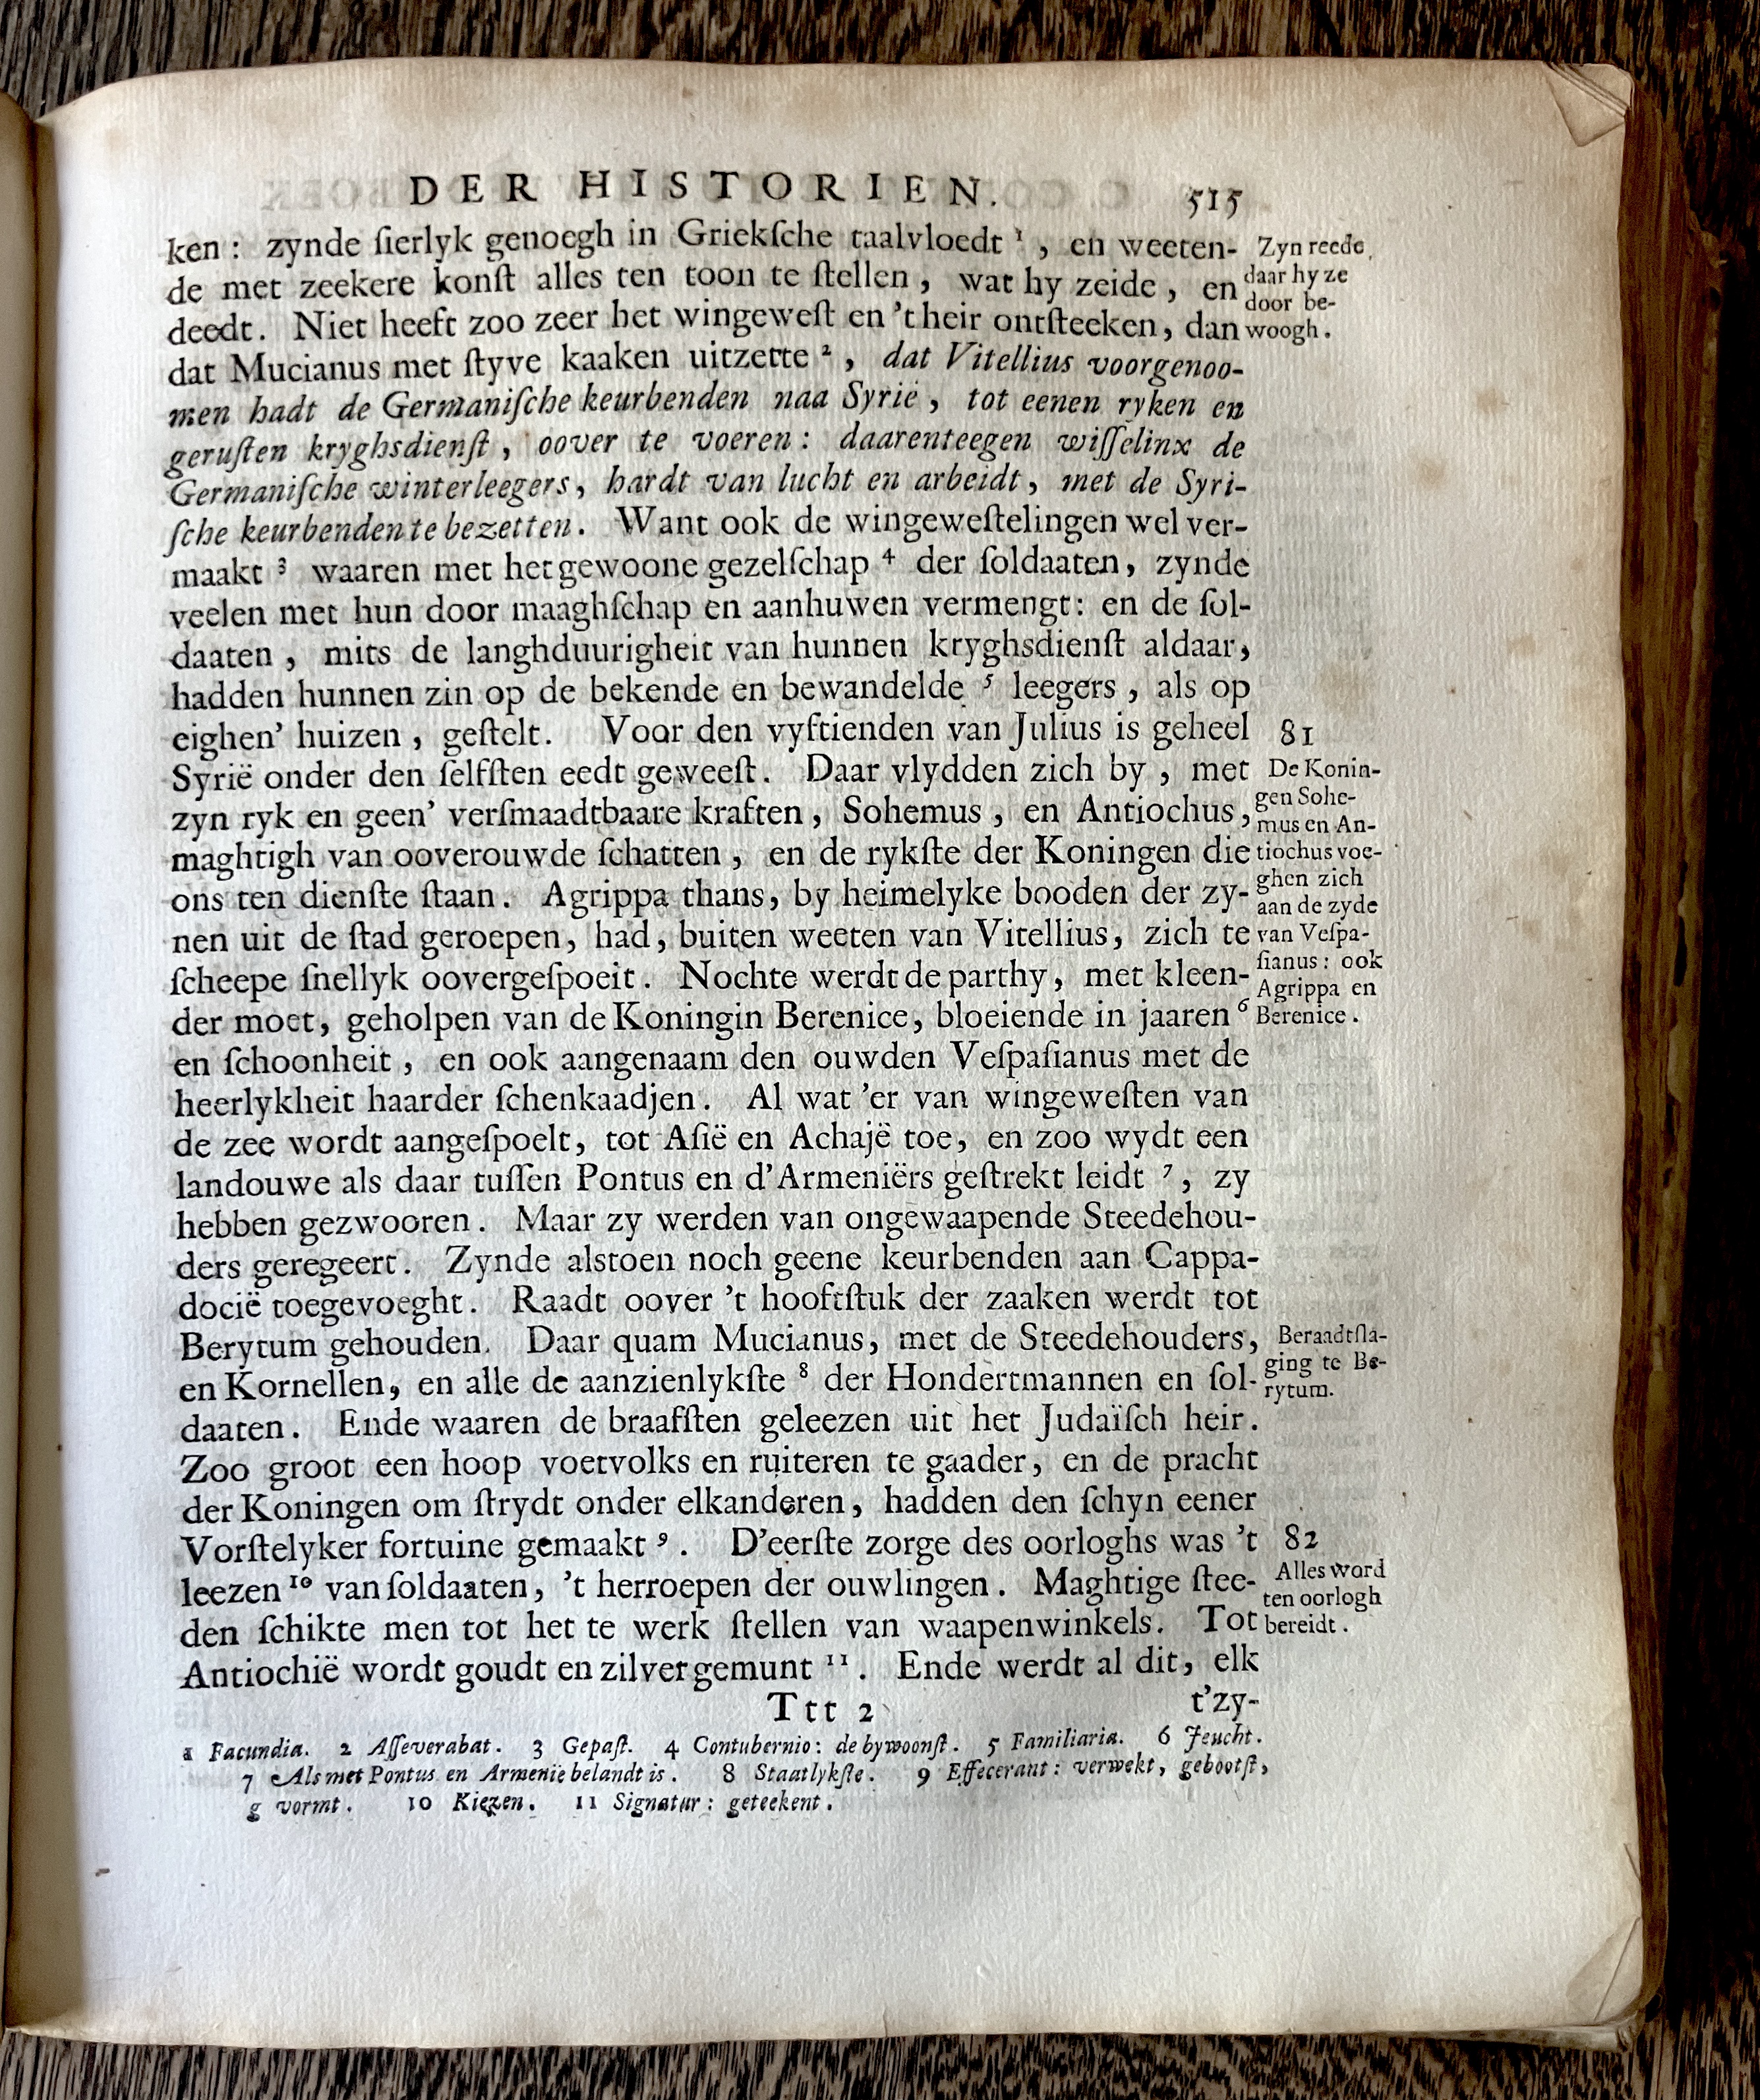 DER HISTORIEN. 515
ken: zynde ſierlyk genoegh in Griekſche taalvloedt ¹, en weeten-
de met zeekere konſt alles ten toon te ſtellen, wat hy zeide, en
deedt. Niet heeft zoo zeer het wingeweſt en 'their ontſteeken, dan
dat Mucianus met ſtyve kaaken uitzette ², dat Vitellius voorgenoo-
men hadt de Germaniſche keurbenden naa Syrië, tot eenen ryken en
geruſten kryghsdienſt, oover te voeren: daarenteegen wiſſelinx de
Germaniſche winterleegers, hardt van lucht en arbeidt, met de Syri-
ſche keurbenden te bezetten. Want ook de wingeweſtelingen wel ver-
maakt ³ waaren met het gewoone gezelſchap ⁴ der ſoldaaten, zynde
veelen met hun door maaghſchap en aanhuwen vermengt: en de ſol-
daaten, mits de langhduurigheit van hunnen kryghsdienſt aldaar,
hadden hunnen zin op de bekende en bewandelde ⁵ leegers, als op
eighen' huizen, geſtelt. Voor den vyftienden van Julius is geheel
Syrië onder den ſelfſten eedt geweeſt. Daar vlydden zich by, met
zyn ryk en geen' verſmaadtbaare kraften, Sohemus, en Antiochus,
maghtigh van ooverouwde ſchatten, en de rykſte der Koningen die
ons ten dienſte ſtaan. Agrippa thans, by heimelyke booden der zy-
nen uit de ſtad geroepen, had, buiten weeten van Vitellius, zich te
ſcheepe ſnellyk oovergeſpoeit. Nochte werdt de parthy, met kleen-
der moet, geholpen van de Koningin Berenice, bloeiende in jaaren ⁶
en ſchoonheit, en ook aangenaam den ouwden Veſpaſianus met de
heerlykheit haarder ſchenkaadjen. Al wat 'er van wingeweſten van
de zee wordt aangeſpoelt, tot Aſië en Achajë toe, en zoo wydt een
landouwe als daar tuſſen Pontus en d'Armeniërs geſtrekt leidt ⁷, zy
hebben gezwooren. Maar zy werden van ongewaapende Steedehou-
ders geregeert. Zynde alstoen noch geene keurbenden aan Cappa-
docië toegevoeght. Raadt oover 't hooftſtuk der zaaken werdt tot
Berytum gehouden. Daar quam Mucianus, met de Steedehouders,
en Kornellen, en alle de aanzienlykſte ⁸ der Hondertmannen en ſol-
daaten. Ende waaren de braafſten geleezen uit het Judaïſch heir.
Zoo groot een hoop voetvolks en ruiteren te gaader, en de pracht
der Koningen om ſtrydt onder elkanderen, hadden den ſchyn eener
Vorſtelyker fortuine gemaakt ⁹. D'eerſte zorge des oorloghs was 't
leezen ¹⁰ van ſoldaaten, 't herroepen der ouwlingen. Maghtige ſtee-
den ſchikte men tot het te werk ſtellen van waapenwinkels. Tot
Antiochië wordt goudt en zilver gemunt ¹¹. Ende werdt al dit, elk
Ttt 2 t'zy-
Zyn reede,
daar hy ze
door be-
woogh.
81
De Konin-
gen Sohe-
mus en An-
tiochus voe-
ghen zich
aan de zyde
van Veſpa-
ſianus: ook
Agrippa en
Berenice.
Beraadtſla-
ging te Be-
rytum.
82
Alles word
ten oorlogh
bereidt.
1 Facundia. 2 Aſſeverabat. 3 Gepaſt. 4 Contubernio: de bywoonſt. 5 Familiaria. 6 Jeucht.
7 Als met Pontus en Armenië belandt is. 8 Staatlykſte. 9 Effecerant: verwekt, gebootſt,
g vormt. 10 Kiezen. 11 Signatur: geteekent.